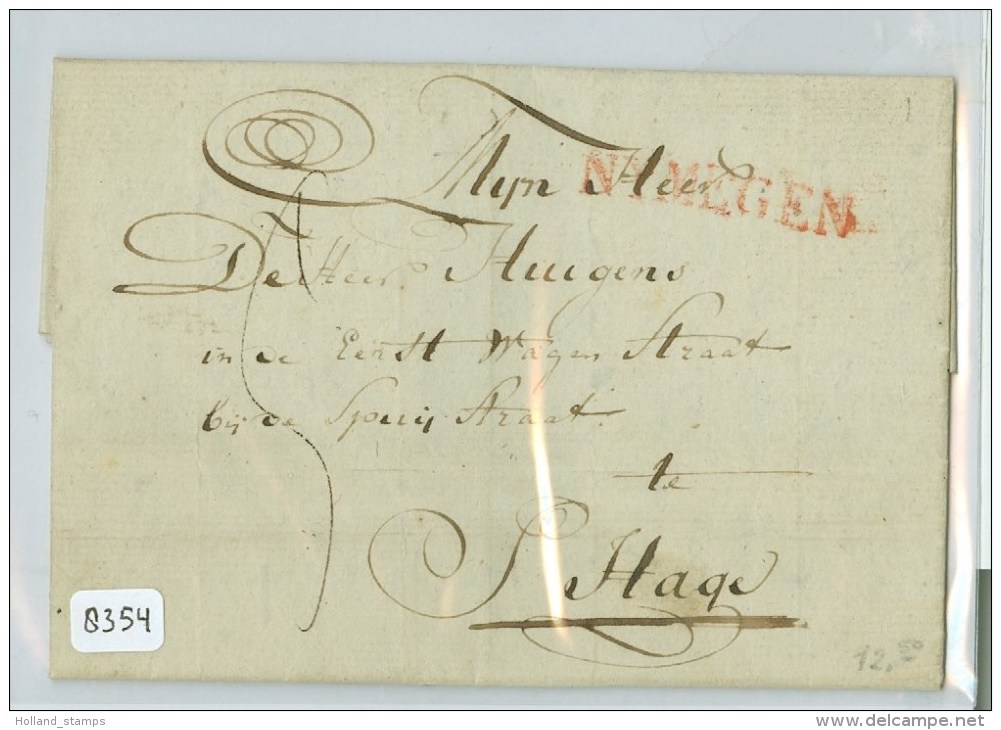 Mijn Heer
NYMEGEN
De Heer Huigens
in de Eerst Wagen Straat
bij de Spuij Straat
te
S Hage
8354
12,50
Holland_stamps
www.delcampe.net